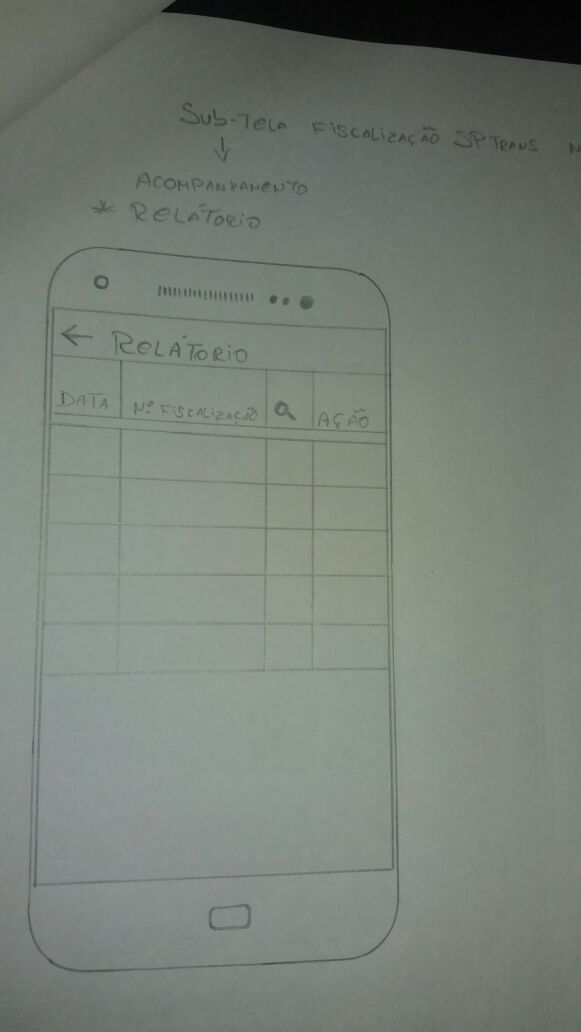 Sub-Tela Fiscalização SPTrans
Acompanhamento
* Relátorio
← Relátorio
Data Nº Fiscalização Ação